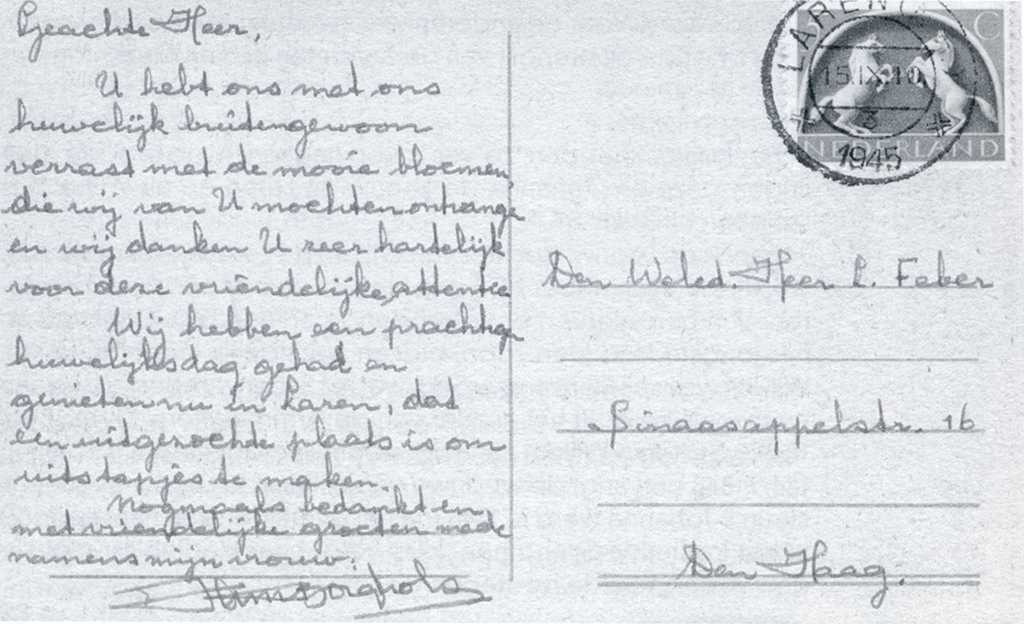 Geachte Heer,
U hebt ons met ons
huwelijk buitengewoon
verrast met de mooie bloemen
die wij van U mochten ontvange
en wij danken U zeer hartelijk
voor deze vriendelijke attentie
Wij hebben een prachtige
huwelijksdag gehad en
genieten nu in Laren, dat
een uitgezochte plaats is om
uitstapjes te maken.
Nogmaals bedankt en
met vriendelijke groeten mede
namens mijn vrouw.
LAREN
15.IX.10
3
1945
C
NEDERLAND
Den Weled. Heer L. Feber
Sinaasappelstr. 16
Den Haag.